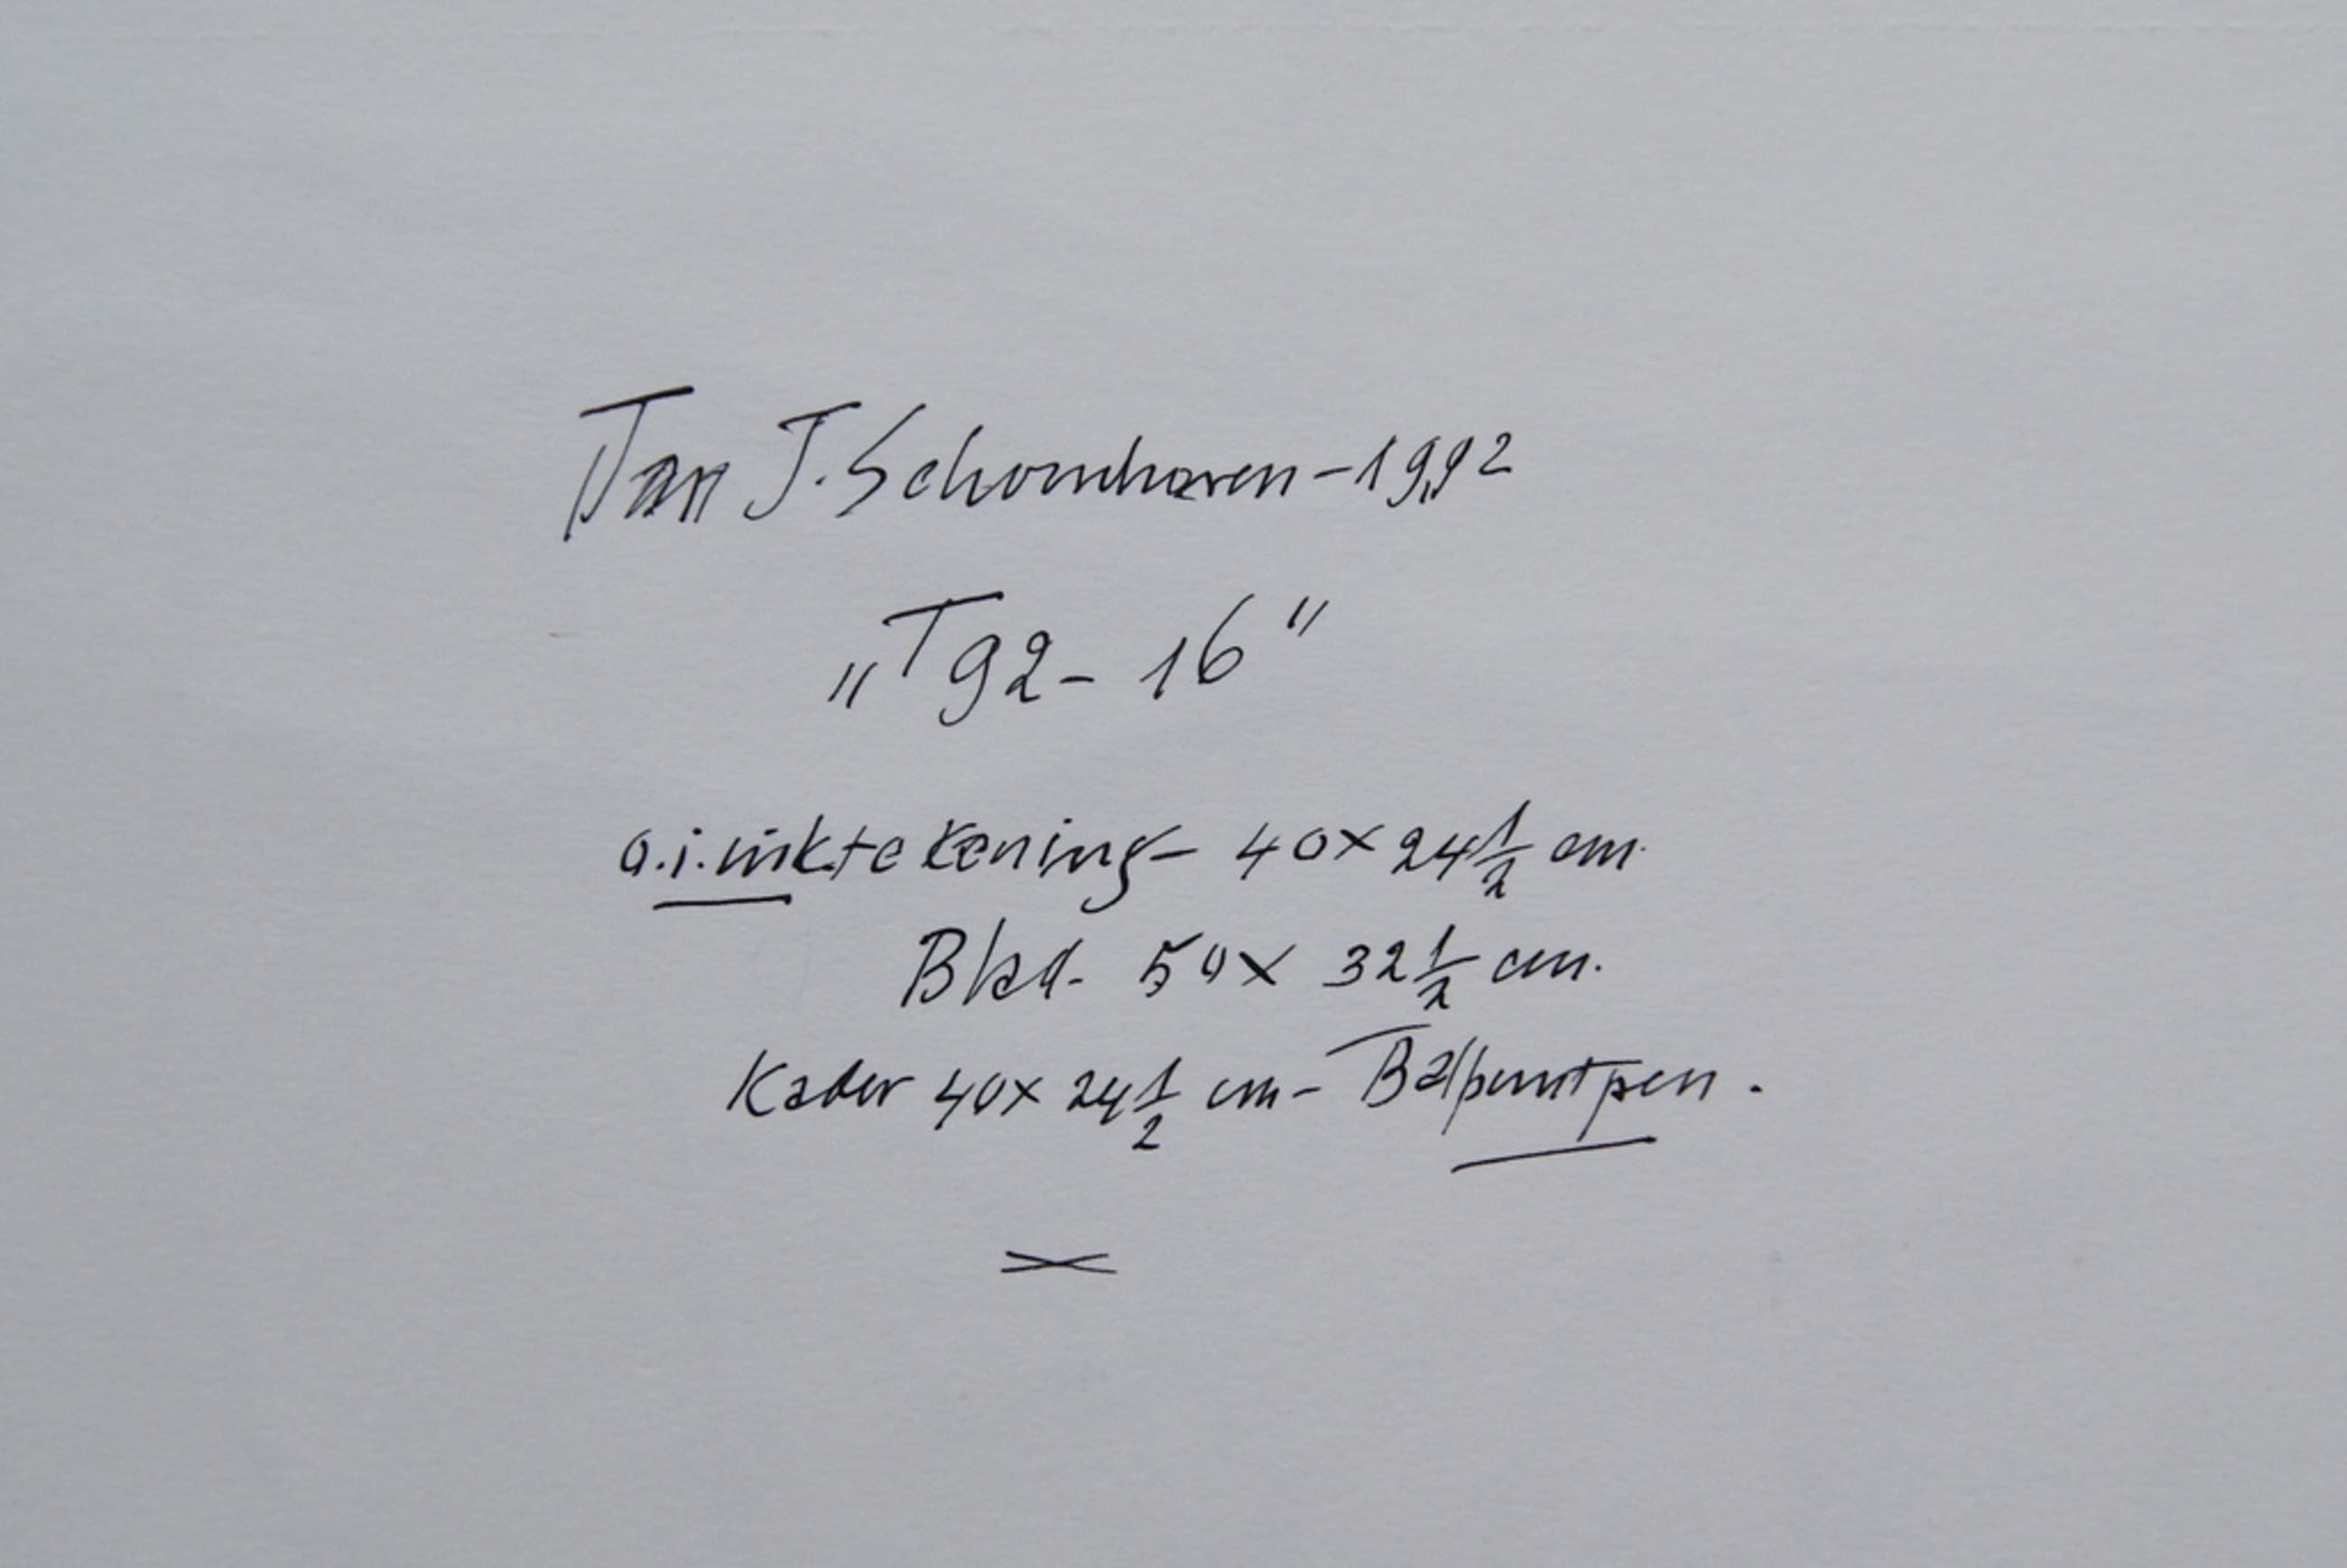 Jan J. Schoonhoven - 1992
„T 92 - 16"
o.i. inktekening - 40 x 24 1/2 cm.
Blad. 50 x 32 1/2 cm.
Kader 40 x 24 1/2 cm - Balpuntpen.